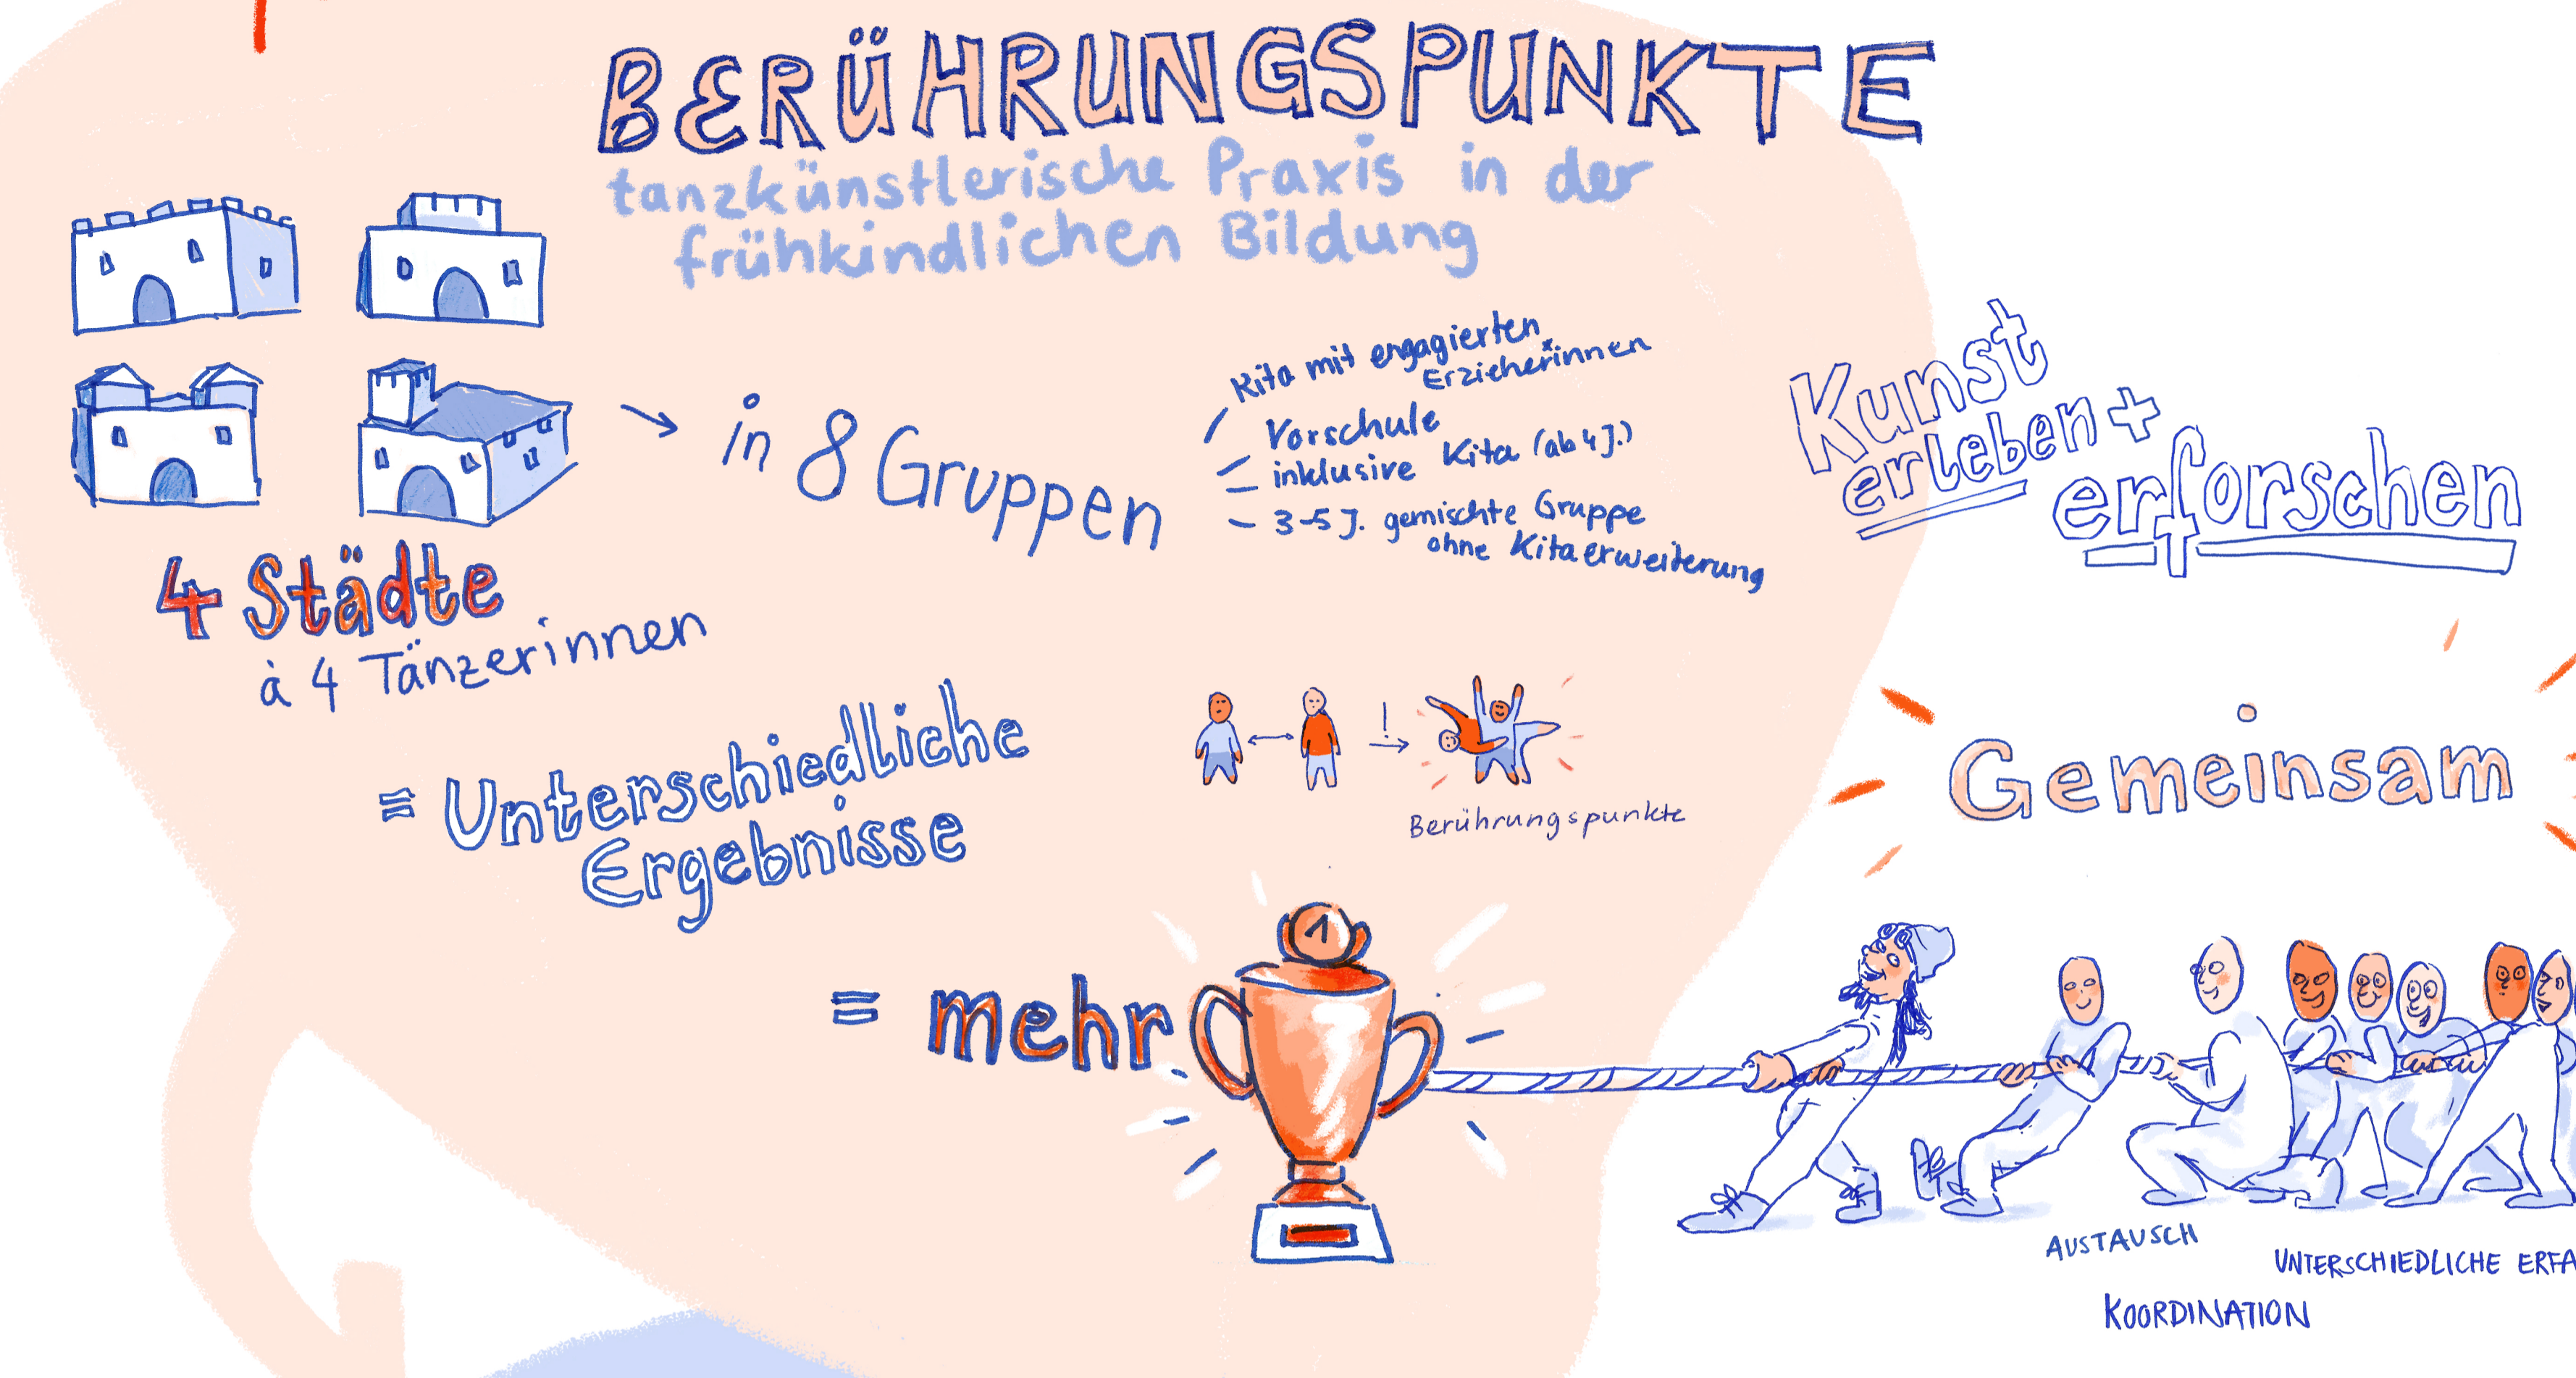 BERÜHRUNGSPUNKTE
tanzkünstlerische Praxis in der
frühkindlichen Bildung
4 Städte
à 4 Tänzerinnen
in 8 Gruppen
Kita mit engagierten
Erzieher*innen
Vorschule
inklusive Kita (ab 4 J.)
3-5 J. gemischte Gruppe
ohne Kitaerweiterung
Kunst
erleben +
erforschen
= Unterschiedliche
Ergebnisse
!
Berührungspunkte
Gemeinsam
= mehr
1
AUSTAUSCH
UNTERSCHIEDLICHE ERFA
KOORDINATION